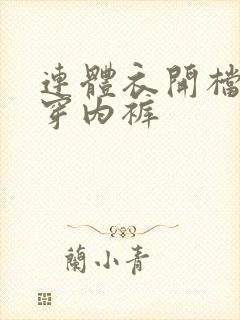 連體衣開檔
穿內褲
蘭小青